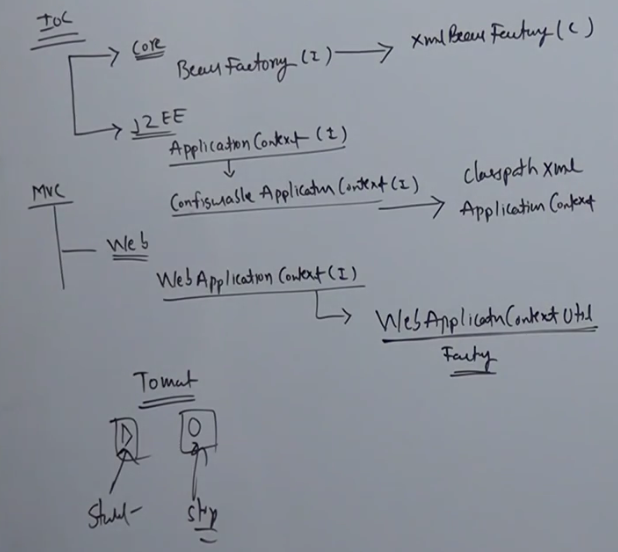 IOC
Core
Bean Factory (I) → XmlBean Factory (C)
J2EE
Application Context (I)
↓
Configurable Application Context (I) → classpath xml
Application Context
MVC
Web
WebApplication Context (I)
WebApplicatn Context Util
Tomat
stop